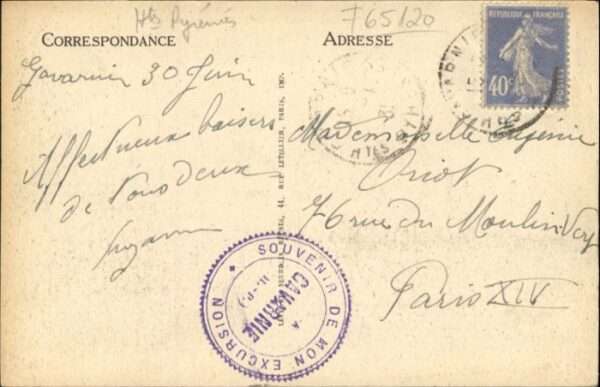 Htes Pyrénées
F65120
CORRESPONDANCE
ADRESSE
Gavarnie 30 Juin
Affectueux baisers
de vous deux
Suzanne
Mademoiselle Eugénie
Oriot
76 rue du Moulin Vert
Paris XIV
RÉPUBLIQUE FRANÇAISE
40c
POSTES
SOUVENIR DE MON EXCURSION
A
GAVARNIE
(H.-P.)